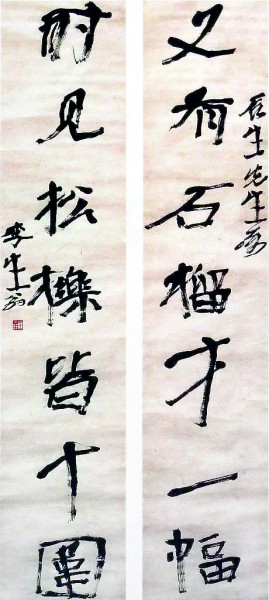 又有石榴才一幅
長生先生屬
时见松櫟皆十圍
李生翁